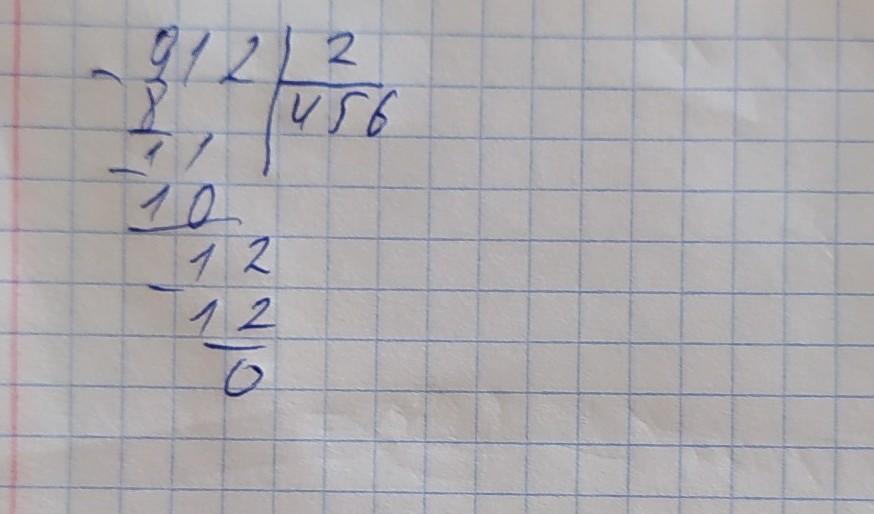 - 912 | 2
8 | 456
- 11
10
- 12
12
0